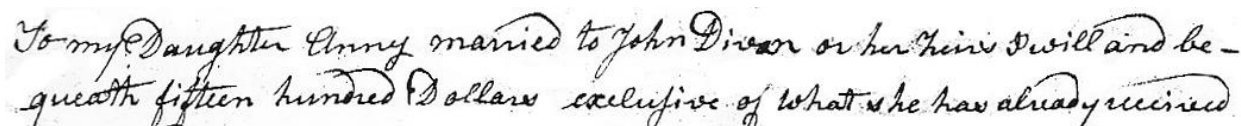 To my Daughter Anny married to John Divan or her heirs I will and be-
queath fifteen hundred Dollars exclusive of what she has already received